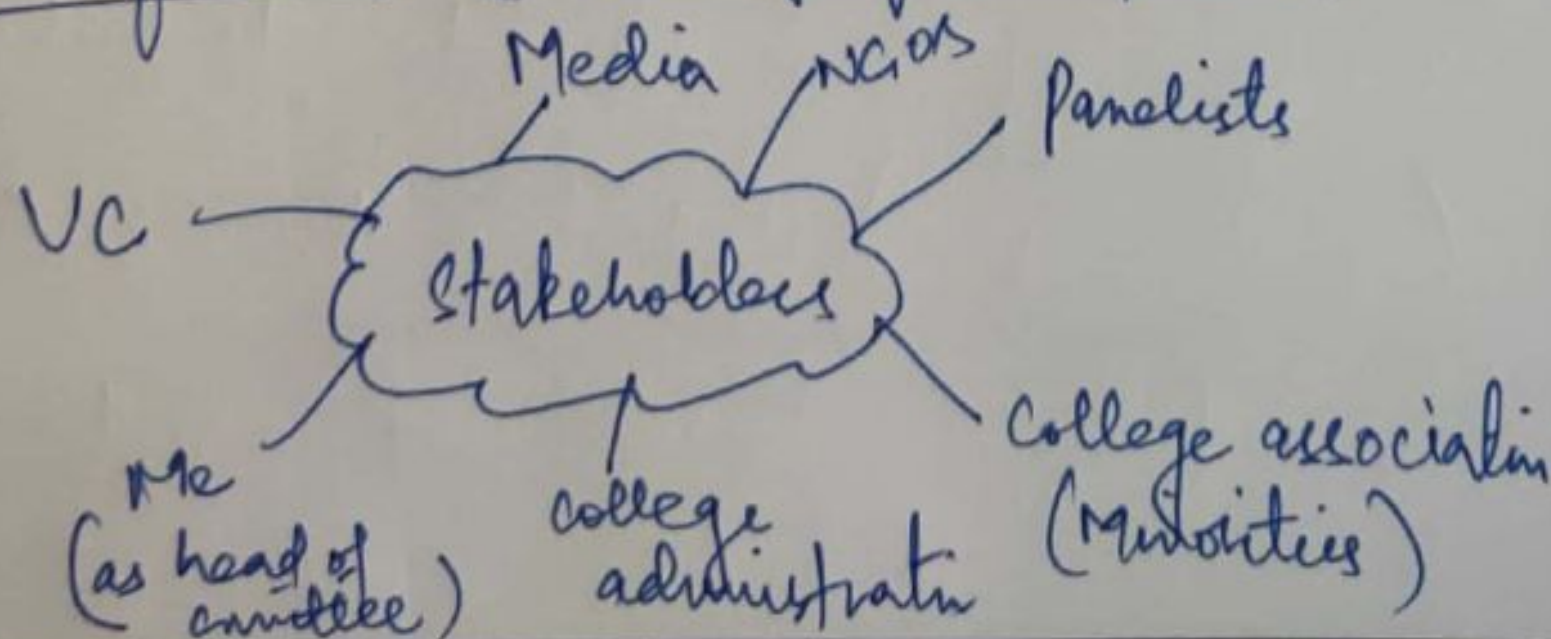 Media
NGOs
Panelists
VC
Stakeholders
Me
(as head of
committee)
college
administratn
College association
(Minorities)